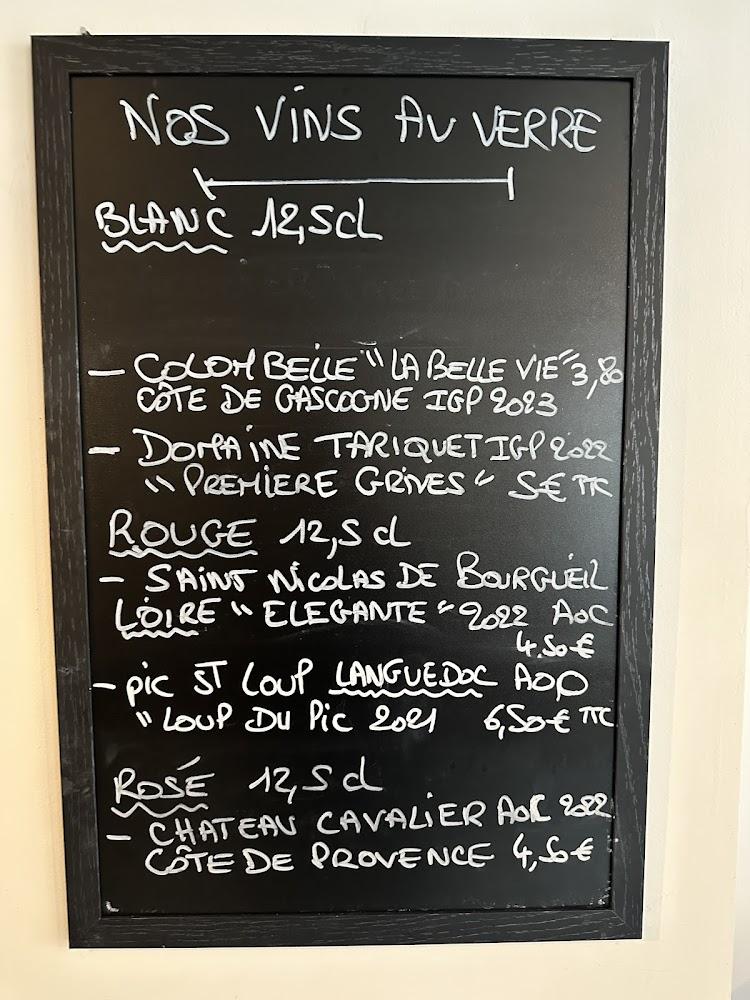 NOS VINS AU VERRE
BLANC 12,5cl
- COLOMBELLE "LA BELLE VIE" 3,80
CÔTE DE GASCOGNE IGP 2023
- DOMAINE TARIQUET IGP 2022
"PREMIERE GRIVES" 5€ TTC
ROUGE 12,5 cl
- SAINT NICOLAS DE BOURGUEIL
LOIRE "ELEGANTE" 2022 AOC
4.50€
- PIC ST LOUP LANGUEDOC AOP
"LOUP DU PIC 2021 6,50€ TTC
ROSÉ 12,5 cl
- CHATEAU CAVALIER AOC 2022
CÔTE DE PROVENCE 4,50€